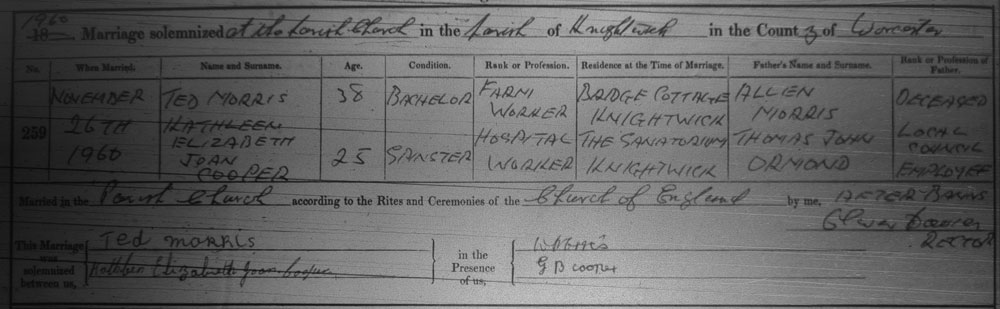 1960
18 . Marriage solemnized at the Parish Church in the Parish of Knightwick in the County of Worcester
No. When Married. Name and Surname. Age. Condition. Rank or Profession. Residence at the Time of Marriage. Father's Name and Surname. Rank or Profession of Father.
259
NOVEMBER
26TH
1960
TED MORRIS
38
BACHELOR
FARM
WORKER
BRIDGE COTTAGE
KNIGHTWICK
ALLEN
MORRIS
DECEASED
KATHLEEN
ELIZABETH
JOAN
COOPER
25
HOSPITAL
WORKER
THE SANATORIUM
KNIGHTWICK
THOMAS JOHN
ORMOND
LOCAL
COUNCIL
EMPLOYEE
Married in the Parish Church according to the Rites and Ceremonies of the Church of England by me, AFTER BANNS
RECTOR
This Marriage was solemnized between us,
Ted morris
Kathleen Elizabeth Joan Cooper
in the Presence of us,
G B cooper